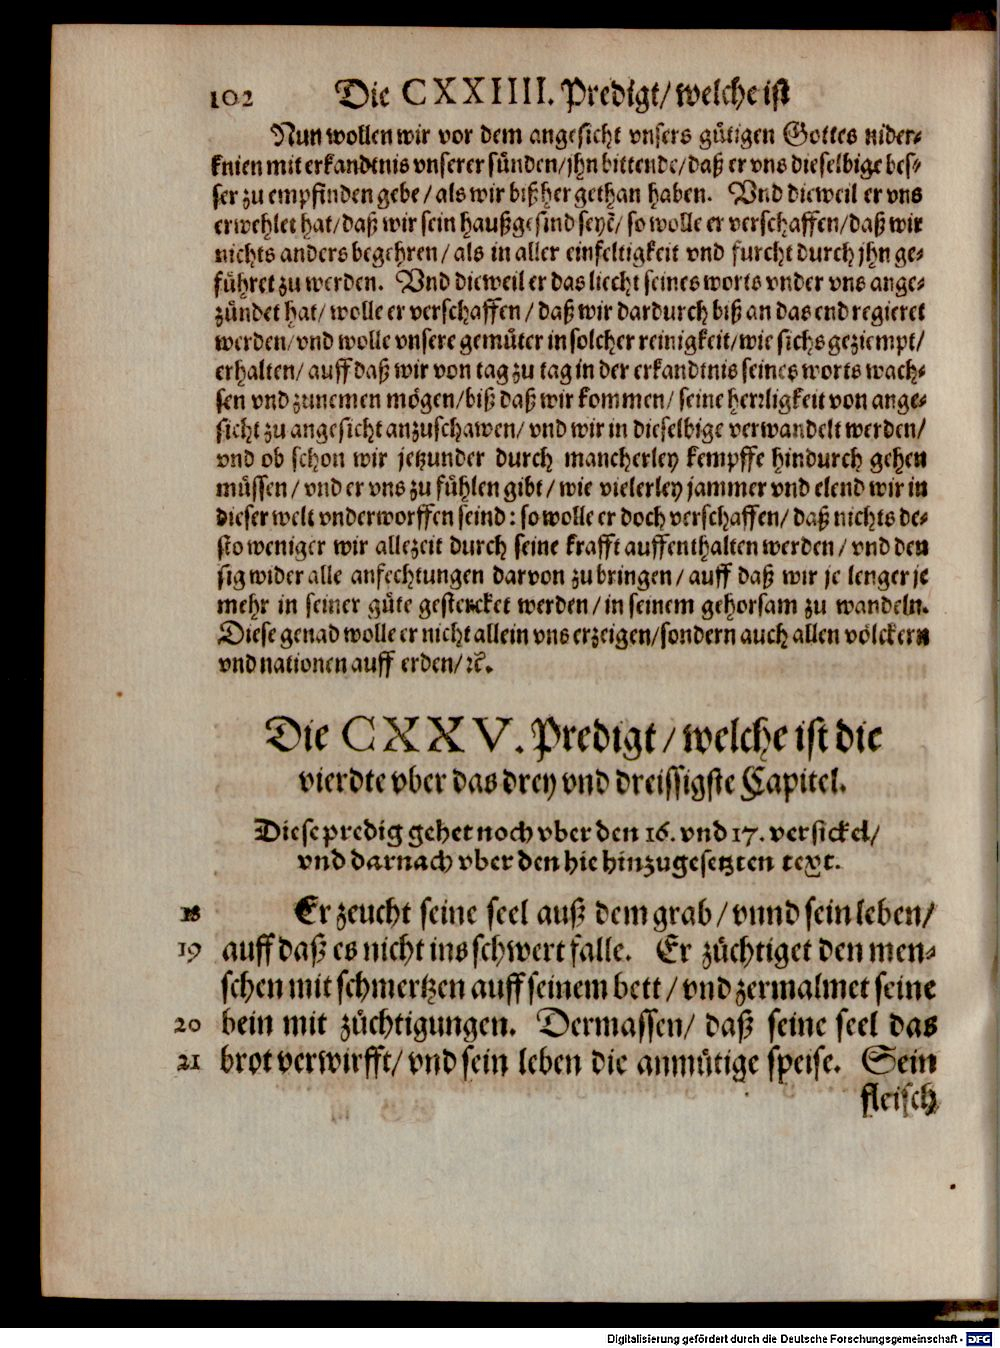 102 Die CXXIIII. Predigt/ welche ist
Nun wollen wir vor dem angesicht vnsers gütigen Gottes nider-
knien mit erkandtnis vnserer sünden/ jhn bittende/ daß er vns dieselbige bes-
ser zu empfinden gebe/ als wir bißher gethan haben. Vnd dieweil er vns
erwehlet hat/ daß wir sein haußgesind seyẽ/ so wolle er verschaffen/ daß wir
nichts anders begehren/ als in aller einfeltigkeit vnd furcht durch jhn ge-
führet zu werden. Vnd dieweil er das liecht seines worts vnder vns ange-
zündet hat/ wolle er verschaffen/ daß wir dardurch biß an das end regieret
werden/ vnd wolle vnsere gemüter in solcher reinigkeit/ wie sichs geziempt/
erhalten/ auff daß wir von tag zu tag in der erkandtnis seines worts wach-
sen vnd zunemen mögen/ biß daß wir kommen/ seine herrligkeit von ange-
sicht zu angesicht anzuschawen/ vnd wir in dieselbige verwandelt werden/
vnd ob schon wir jetzunder durch mancherley kempffe hindurch gehen
müssen/ vnd er vns zu fühlen gibt/ wie vielerley jammer vnd elend wir in
dieser welt vnderworffen seind: so wolle er doch verschaffen/ daß nichts de-
sto weniger wir allezeit durch seine krafft auffenthalten werden/ vnd den
sig wider alle anfechtungen darvon zubringen/ auff daß wir je lenger je
mehr in seiner güte gestercket werden/ in seinem gehorsam zu wandeln.
Diese genad wolle er nicht allein vns erzeigen/ sondern auch allen völckern
vnd nationen auff erden/ ꝛc̃.
Die CXXV. Predigt/ welche ist die
vierdte vber das drey vnd dreissigste Capitel.
Diese predig gehet noch vber den 16. vnd 17. versickel/
vnd darnach vber den hie hinzugesetzten text.
18 Er zeucht seine seel auß dem grab/ vnnd sein leben/
19 auff daß es nicht ins schwert falle. Er züchtiget den men-
schen mit schmertzen auff seinem bett/ vnd zermalmet seine
20 bein mit züchtigungen. Dermassen/ daß seine seel das
21 brot verwirfft/ vnd sein leben die anmütige speise. Sein
fleisch
Digitalisierung gefördert durch die Deutsche Forschungsgemeinschaft - DFG